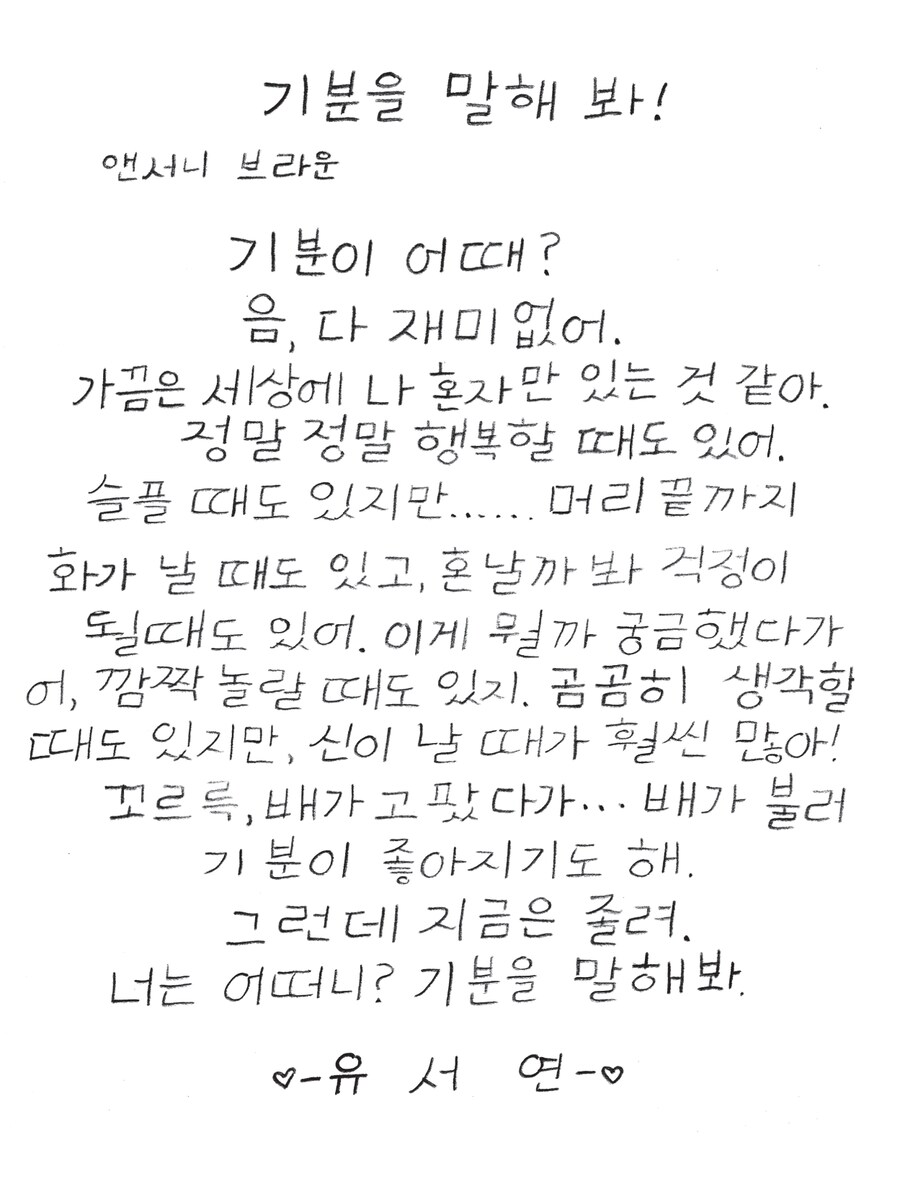 기분을 말해 봐!
앤서니 브라운
기분이 어때?
음, 다 재미없어.
가끔은 세상에 나 혼자만 있는 것 같아.
정말 정말 행복할 때도 있어.
슬플 때도 있지만...... 머리끝까지
화가 날 때도 있고, 혼날까 봐 걱정이
될때도 있어. 이게 뭘까 궁금했다가
어, 깜짝 놀랄 때도 있지. 곰곰히 생각할
때도 있지만, 신이 날 때가 훨씬 많아!
꼬르륵, 배가 고팠다가... 배가 불러
기분이 좋아지기도 해.
그런데 지금은 졸려.
너는 어떠니? 기분을 말해봐.
♡-유 서 연-♡